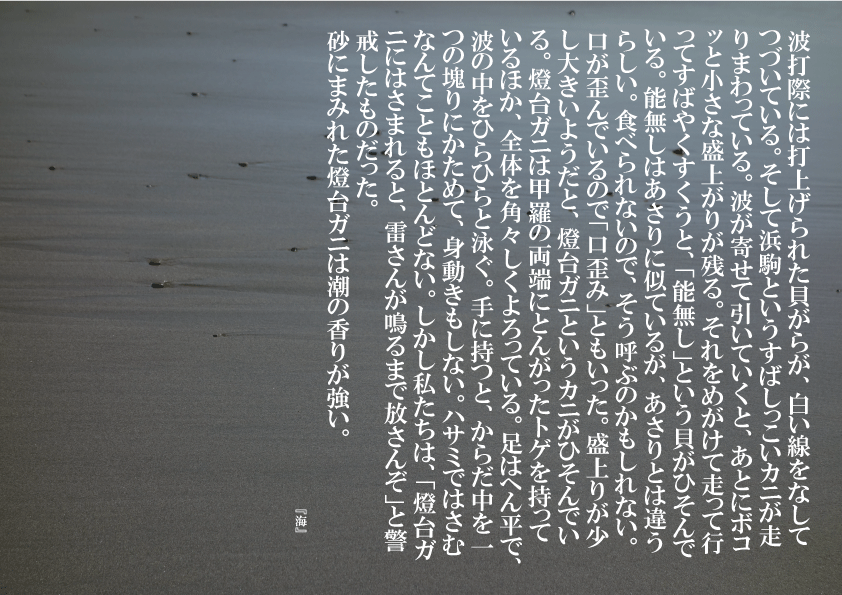 波打際には打上げられた貝がらが、白い線をなして
つづいている。そして浜駒というすばしっこいカニが走
りまわっている。波が寄せて引いていくと、あとにボコ
ッと小さな盛上がりが残る。それをめがけて走って行
ってすばやくすくうと、「能無し」という貝がひそんで
いる。能無しはあさりに似ているが、あさりとは違う
らしい。食べられないので、そう呼ぶのかもしれない。
口が歪んでいるので「口歪み」ともいった。盛上りが少
し大きいようだと、燈台ガニというカニがひそんでい
る。燈台ガニは甲羅の両端にとんがったトゲを持って
いるほか、全体を角々しくよろっている。足はへん平で、
波の中をひらひらと泳ぐ。手に持つと、からだ中を一
つの塊りにかためて、身動きもしない。ハサミではさむ
なんてこともほとんどない。しかし私たちは、「燈台ガ
ニにはさまれると、雷さんが鳴るまで放さんぞ」と警
戒したものだった。
砂にまみれた燈台ガニは潮の香りが強い。
『海』